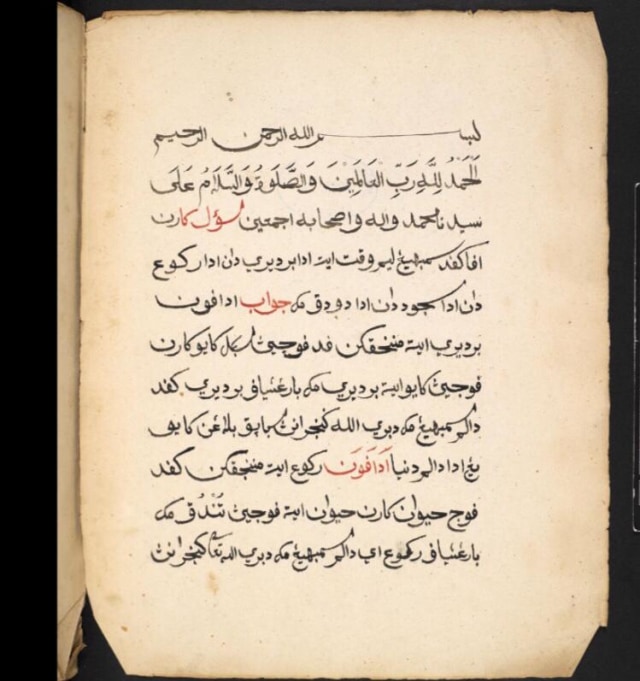 بسم الله الرحمن الرحيم
اَلْحَمْدُ لِلَّهِ رَبِّ الْعَالَمِينَ وَالصَّلَوةُ وَالسَّلَامُ عَلَى
سيدنا محمد واله واصحابه اجمعين سؤل كارن
افا كفد سمبهيڠ ليم وقت ايت ادا برديري دان ادا ركوع
دان ادا سجود دان ادا دودق مك جواب ادافون
برديري ايت منجقكن فد فوجيڽ سكل كايو كارن
فوجيڽ كايو ايت برديري مك بارڠسياف برديري كفد
دالم سمبهيڠ مك دبري الله كنجرانڽ سباپق بلاڠن كايو
يڠ ادا دالم دنيا اَدَافُون ركوع ايت منجقكن كفد
فوج حيوان كارن حيوان ايت فوجيڽ تُنْدُق مك
بارڠسياف ركوع اي دالم سمبهيڠ مك دبري الله تعالى كنجرانڽ